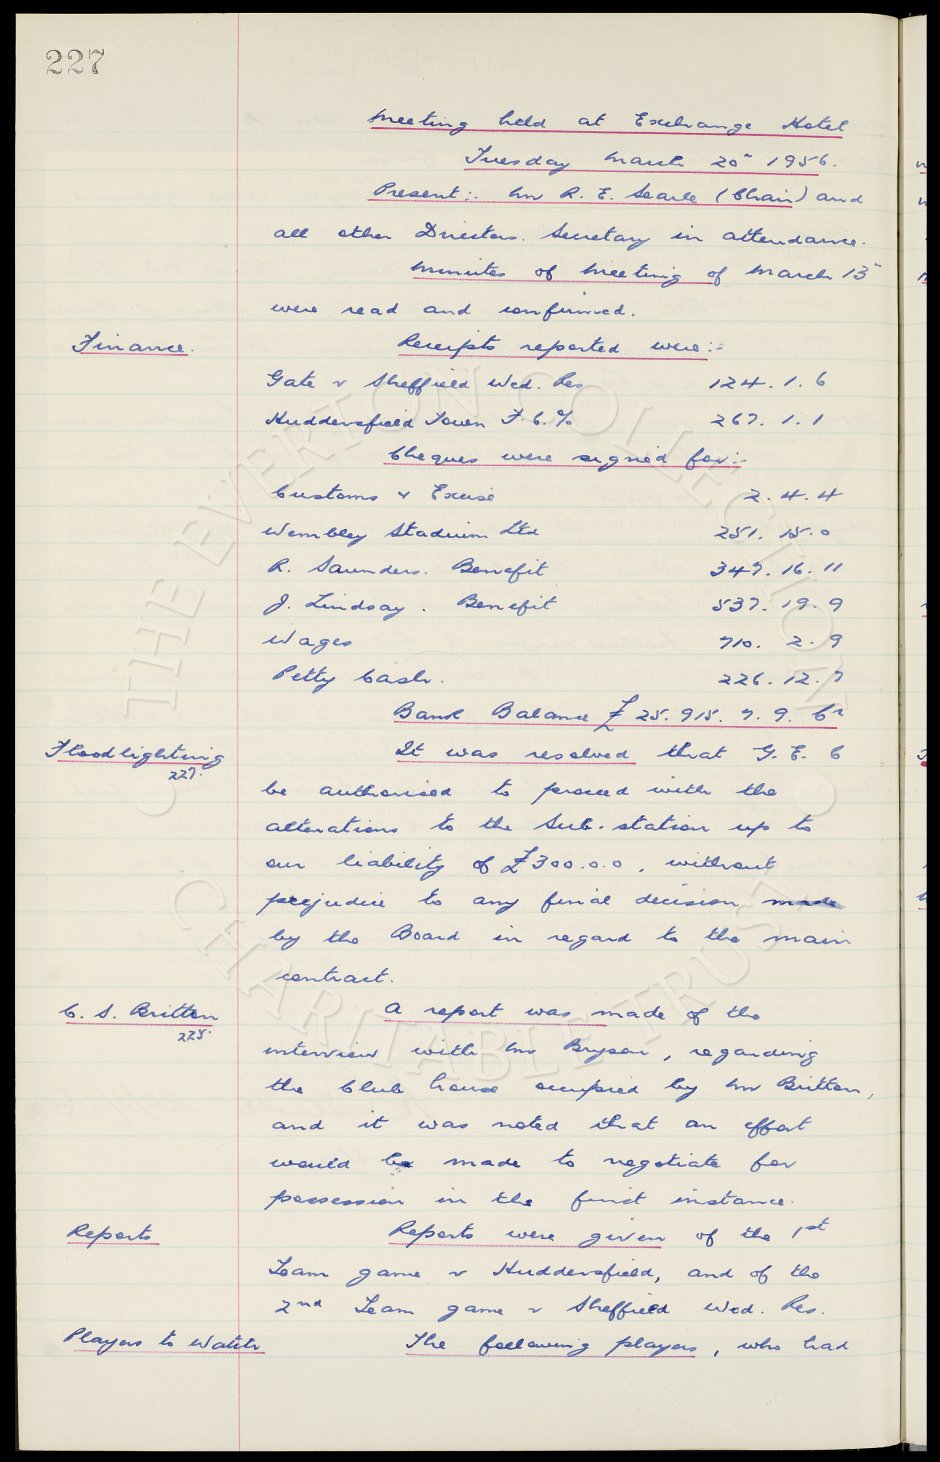 227
Meeting held at Exchange Hotel
Tuesday March 20" 1956.
Present:. Mr R. E. Searle (Chair) and
all other Directors. Secretary in attendance.
Minutes of Meeting of March 13"
were read and confirmed.
Finance. Receipts reported were:-
Gate v Sheffield Wed. Res 124. 1. 6
Huddersfield Town F.C. % 267. 1. 1
Cheques were signed for:-
Customs & Excise 2. 4. 4
Wembley Stadium Ltd 251. 15. 0
R. Saunders. Benefit 347. 16. 11
J. Lindsay. Benefit 537. 19. 9
Wages 710. 2. 9
Petty Cash. 226. 12. 7
Bank Balance £25. 915. 7. 9. Cr
Floodlighting It was resolved that G. E. C
227. be authorised to proceed with the
alterations to the Sub-station up to
our liability of £300.0.0, without
prejudice to any final decision made
by the Board in regard to the main
contract.
C. S. Britton A report was made of the
225. interview with Mr Bryson, regarding
the Club house occupied by Mr Britton,
and it was noted that an effort
would be made to negotiate for
possession in the first instance.
Reports Reports were given of the 1st
Team game v Huddersfield, and of the
2nd Team game v Sheffield Wed. Res.
Players to Watch The following players, who had
THE EVERTON COLLECTION
CHARITABLE TRUST